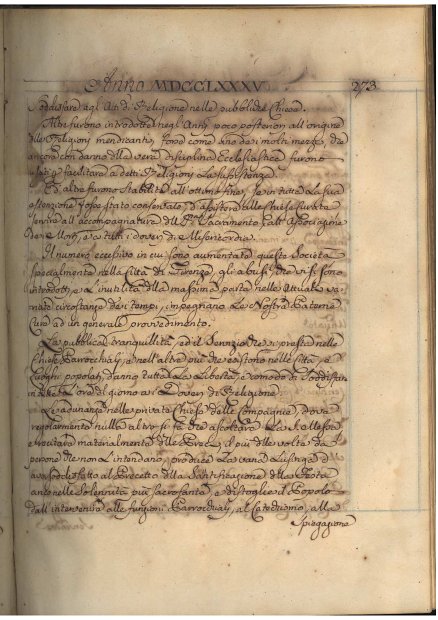 Anno MDCCLXXXV. 273
Soddisfare agl'Atti di Religione nelle pubbliche Chiese.
Altre furono introdotte negl'Anni poco posteriori all'origine
delle Religioni mendicanti, forse come uno dei molti mezzi, che
ancora con danno della vera disciplina Ecclesiastica furono
facilitare a dette Religioni la sussistenza.
Ed altre furono stabilite all'ottimo fine, se in tutta la sua
estenzione fosse stato conservato, d'assistere alle Chiese Curate
all'accompagnatura del SS. Sacramento, all'Associazione
dei e a tutti i doveri di Misericordia.
Il numero eccessivo in cui sono aumentate queste Società
specialmente nella Città di Firenze, gli abusi, che vi si sono
introdotti, e l'inutilità della massima parte nelle attuali va-
riate circostanze dei tempi, impegnano le Nostre Paterne
Cure ad un generale provvedimento.
La pubblica tranquillità, ed il Servizio che si presta nelle
Chiese Parrocchiali, e nell'altre più che esistono nelle Città, e
Luoghi popolati, danno tutta la Libertà, e comodo di Soddisfare
in tutte l'ore del giorno ai Doveri di Religione.
Le adunanze nelle private Chiese delle Compagnie, dove
regolarmente null'altro si fa che ascoltare la Messa
e recitare materialmente delle Preci, il più delle volte da
persone che non l'intendono, produce la vana Lusinga d'
aver soddisfatto al Precetto della Santificazione delle Feste
anco nelle Solennità più sacrosante, e distoglie il Popolo
dall'intervenire alle funzioni Parrocchiali, al Catechismo, alla
Spiegazione